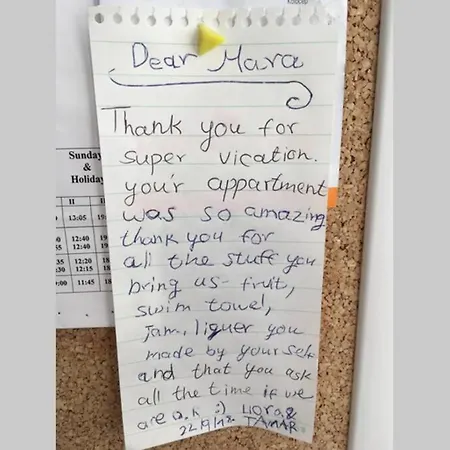 Dear Mara
Thank you for
super vication.
you'r appartment
was so amazing.
thank you for
all the stuff you
bring us - fruit,
swim towel,
jam, liquer you
made by your self
and that you ask
all the time if we
are o.k :) Liora &
TAMAR
Sunday
&
Holiday
II
13:05
12:40
12:40
12:20
12:15
11:45